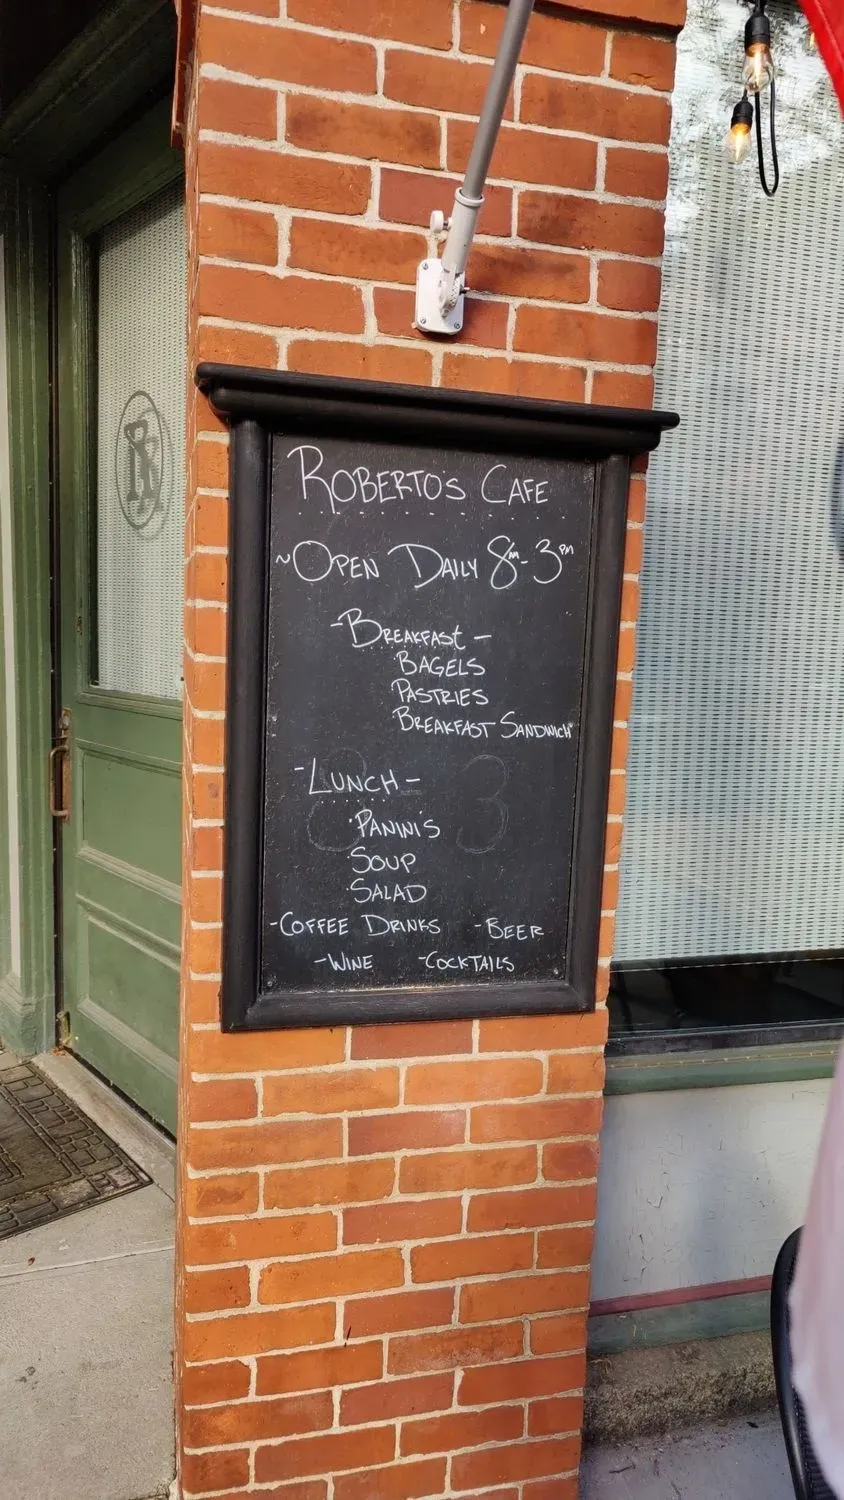 ROBERTO'S CAFE
~OPEN DAILY 8AM-3PM
-BREAKFAST-
BAGELS
PASTRIES
BREAKFAST SANDWICH
-LUNCH-
PANINI'S
SOUP
SALAD
-COFFEE DRINKS -BEER
-WINE -COCKTAILS